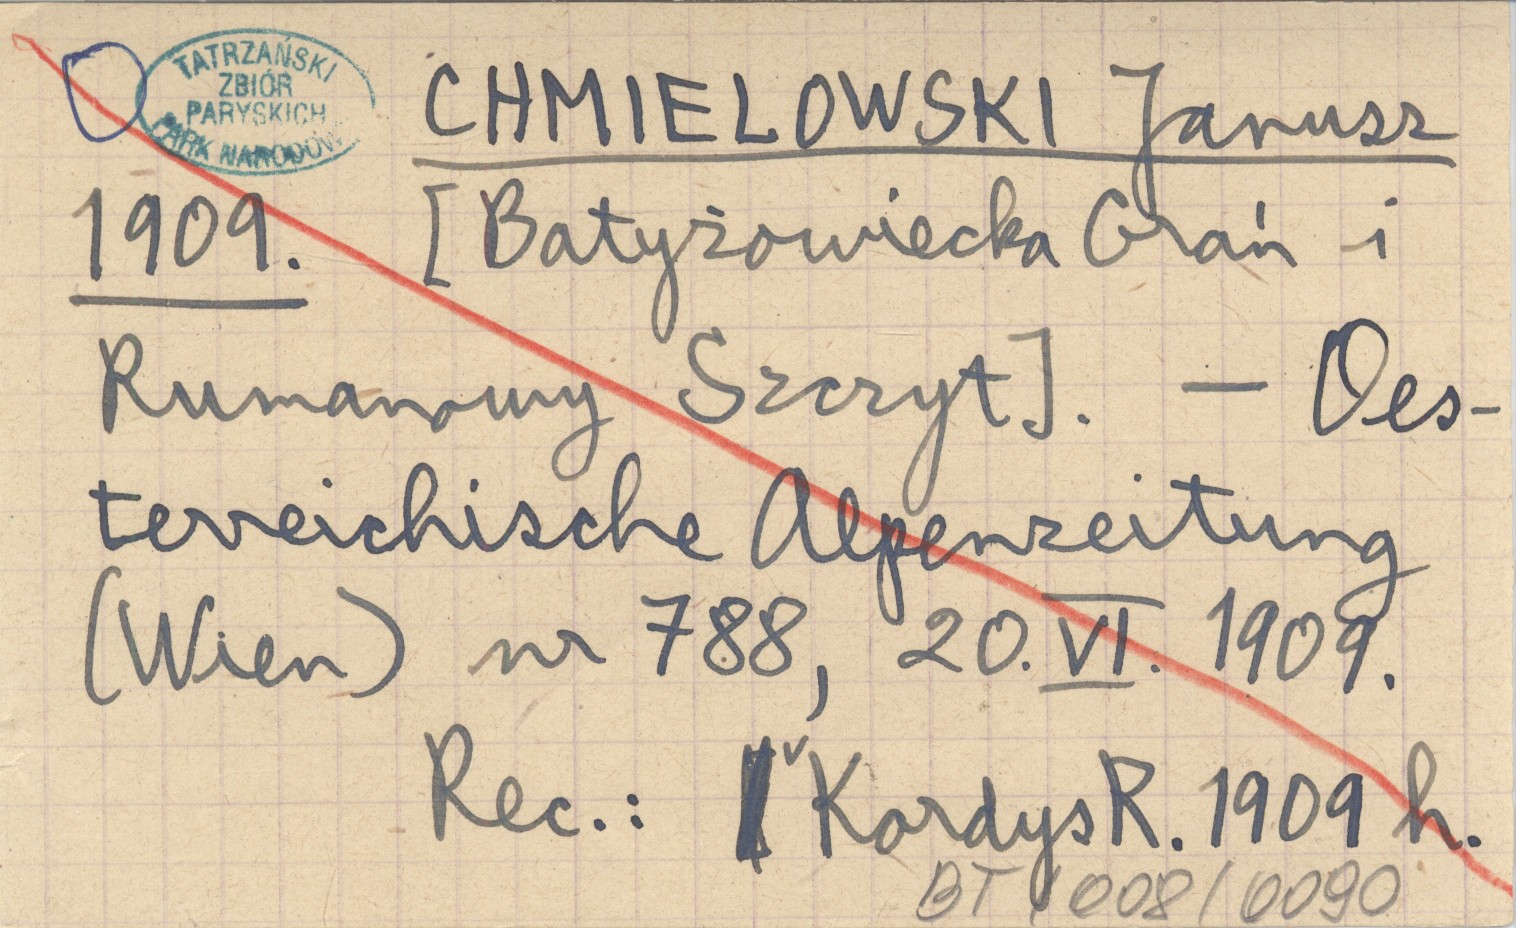 TATRZAŃSKI
ZBIÓR
PARYSKICH
PARK NARODOW
CHMIELOWSKI Janusz
1909. [Batyżowiecka Grań i
Rumanowy Szczyt]. — Oes-
terreichische Alpenzeitung
(Wien) nr 788, 20. VI. 1909.
Rec.: Kordys R. 1909 h.
BT/008/0090